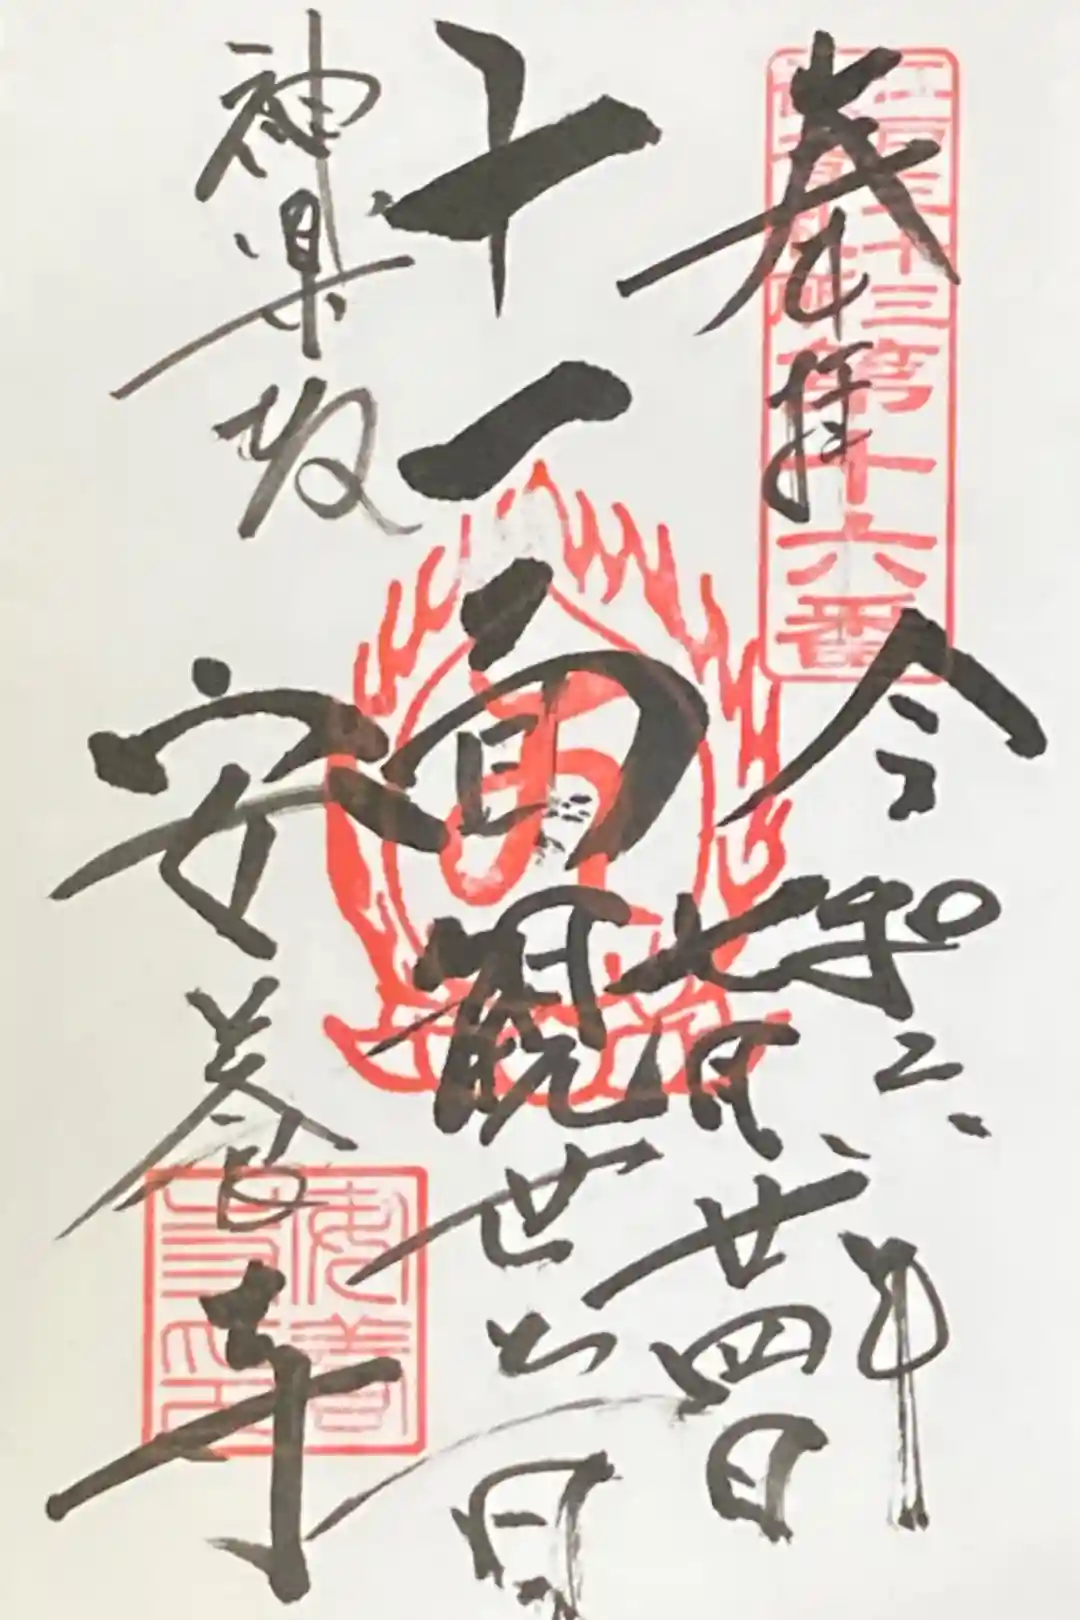 江戸三十三
観音札所
第十六番
奉拝
令和六年
七月廿四日
十一面観世音
神楽坂
安養寺